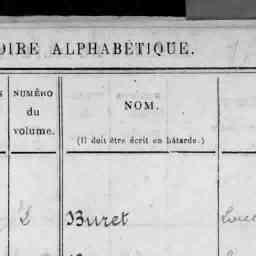 OIRE ALPHABÉTIQUE.
NUMÉRO
du
volume.
NOM.
(Il doit être écrit en bâtarde.)
2 Buret Lou